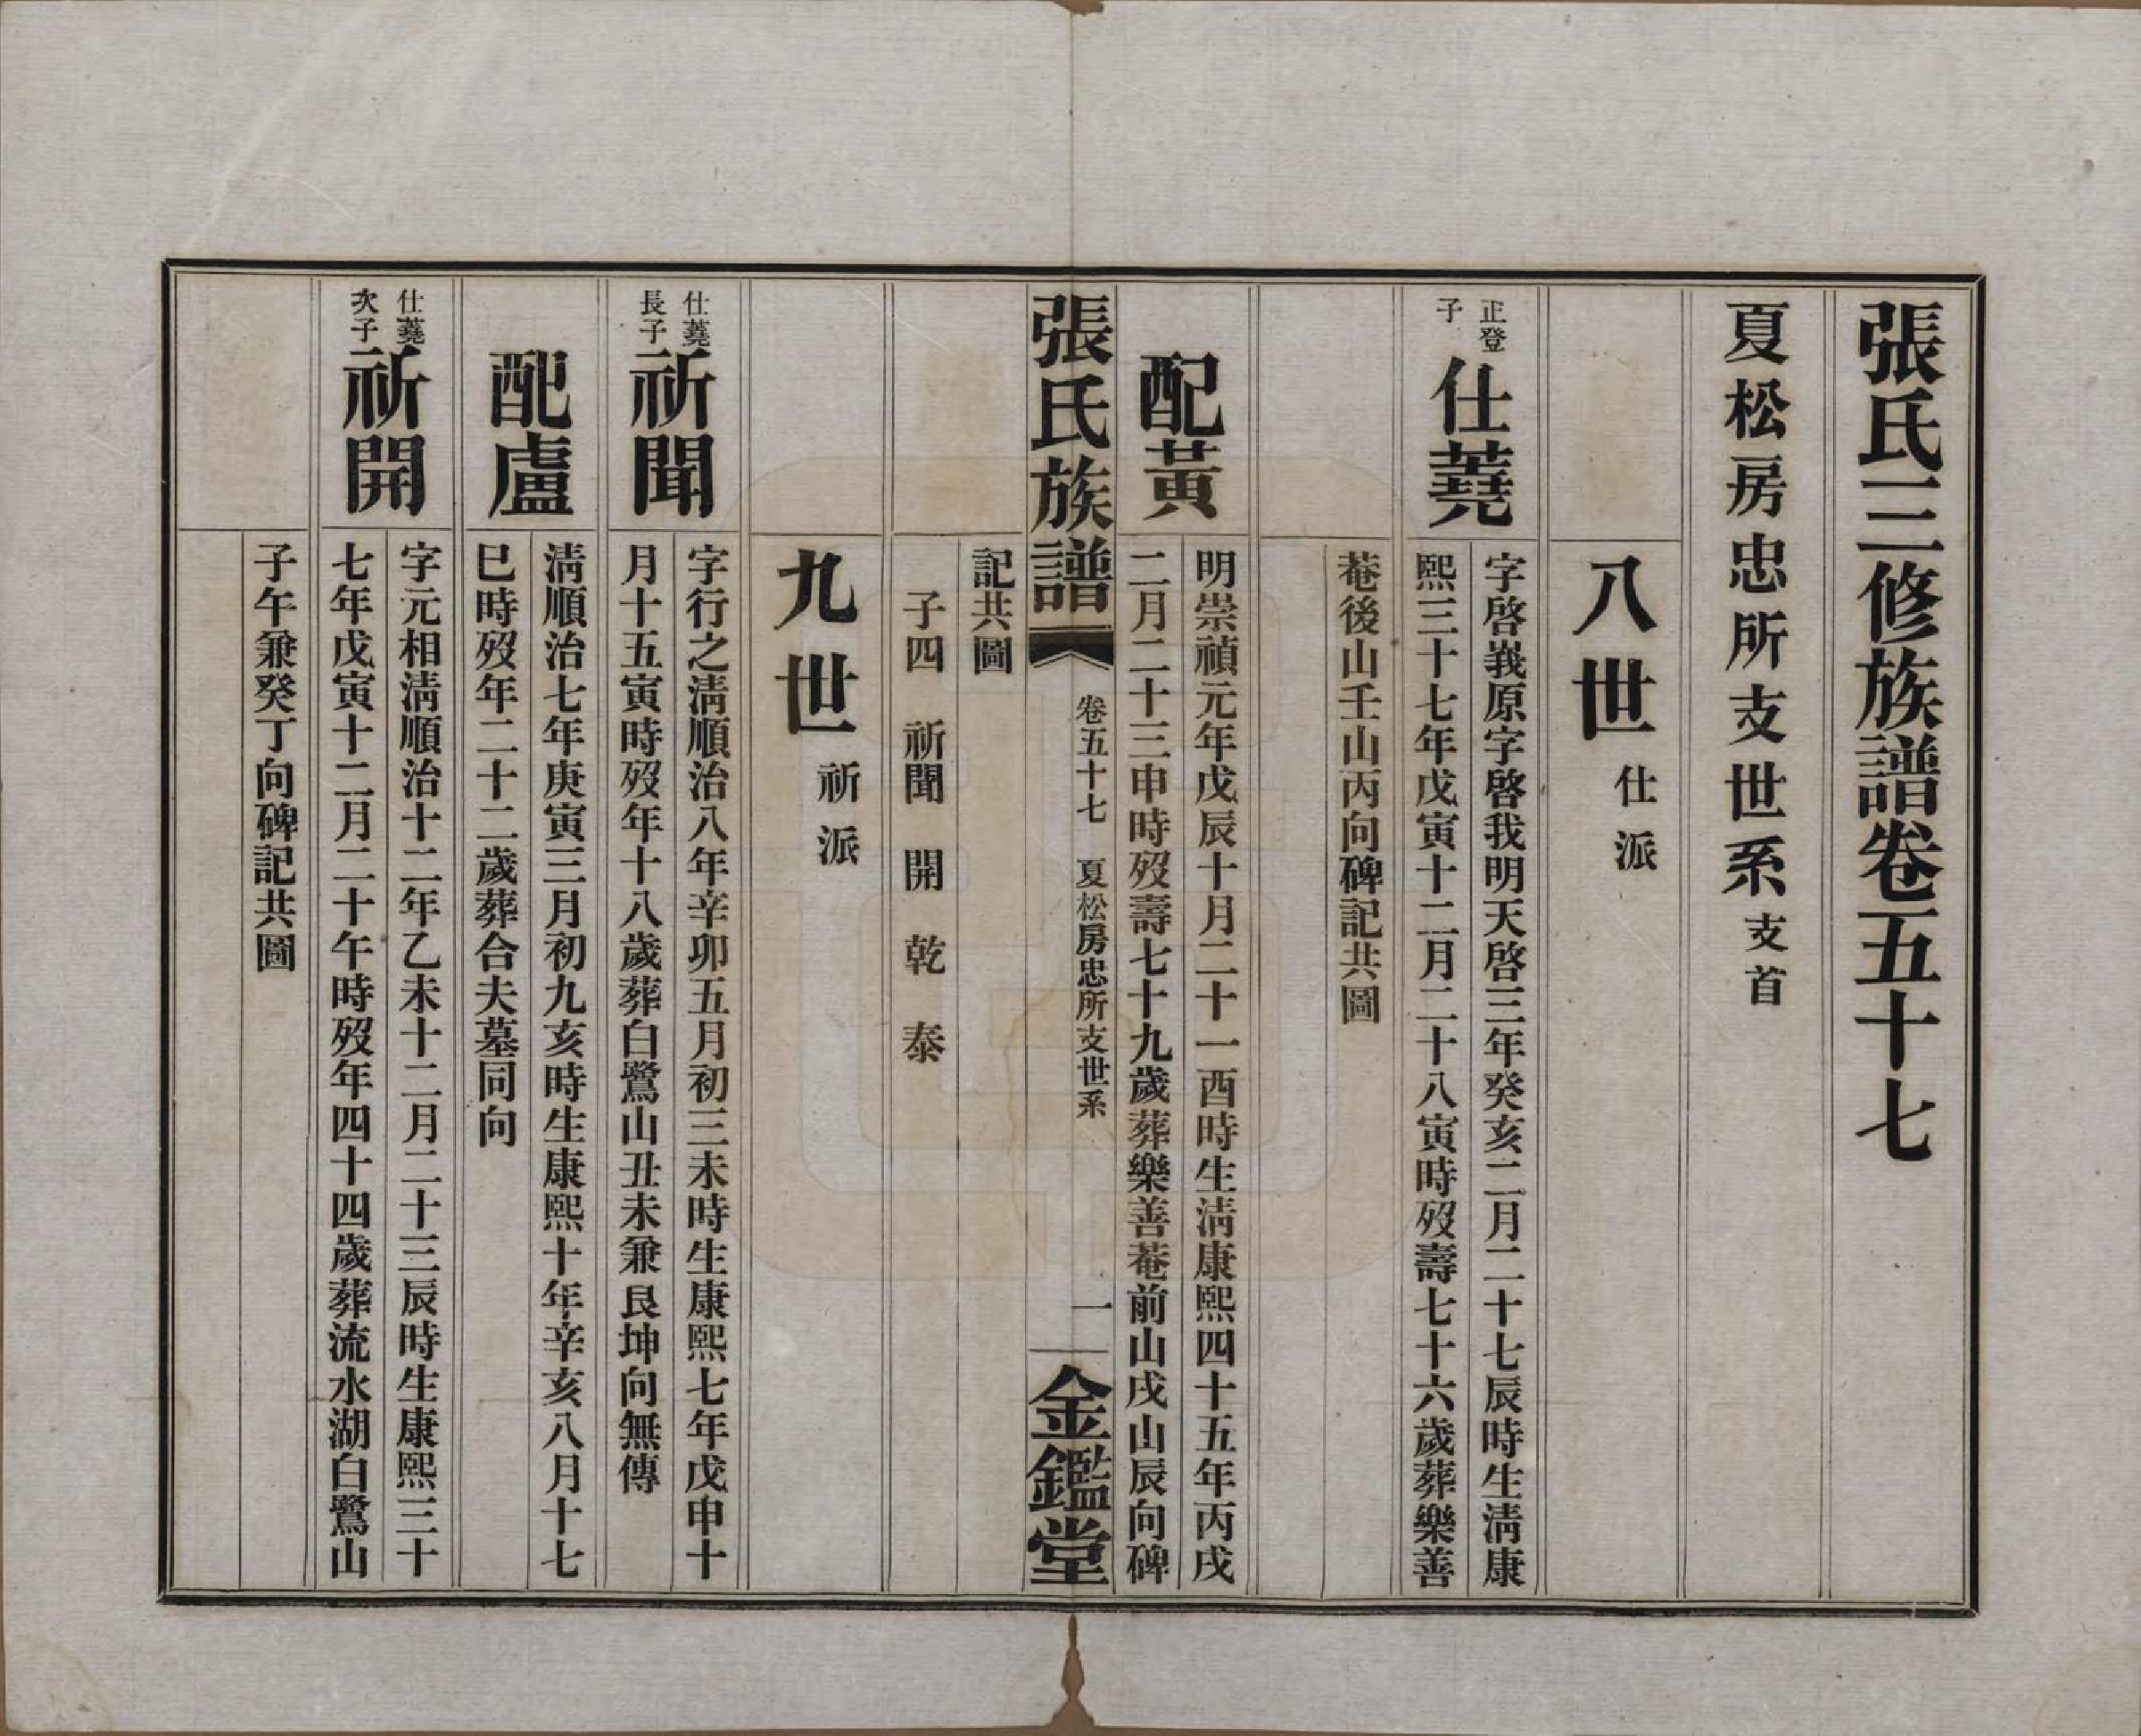 張氏三修族譜卷五十七
夏松房忠所支世系支首
八世仕派
正登
子
仕蕘
字啓峩原字啓我明天啓三年癸亥二月二十七辰時生淸康
熙三十七年戊寅十二月二十八寅時歿壽七十六歲葬樂善
菴後山壬山丙向碑記共圖
配黃
明崇禎元年戊辰十月二十一酉時生淸康熙四十五年丙戌
二月二十三申時歿壽七十九歲葬樂善菴前山戌山辰向碑
張氏族譜 卷五十七 夏松房忠所支世系 一 金鑑堂
記共圖
子四 祈聞 開 乾 泰
九世祈派
仕蕘
長子
祈聞
字行之淸順治八年辛卯五月初三未時生康熙七年戊申十
月十五寅時歿年十八歲葬白鷺山丑未兼艮坤向無傳
配盧
淸順治七年庚寅三月初九亥時生康熙十年辛亥八月十七
巳時歿年二十二歲葬合夫墓同向
仕蕘
次子
祈開
字元相淸順治十二年乙未十二月二十三辰時生康熙三十
七年戊寅十二月二十午時歿年四十四歲葬流水湖白鷺山
子午兼癸丁向碑記共圖